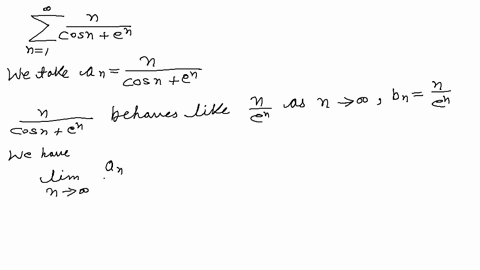 ∑_{n=1}^{∞} n/(cosn + e^n)
We take a_n = n/(cosn + e^n)
n/(cosn + e^n) behaves like n/e^n as n→∞, b_n = n/e^n
We have
lim_{n→∞} a_n